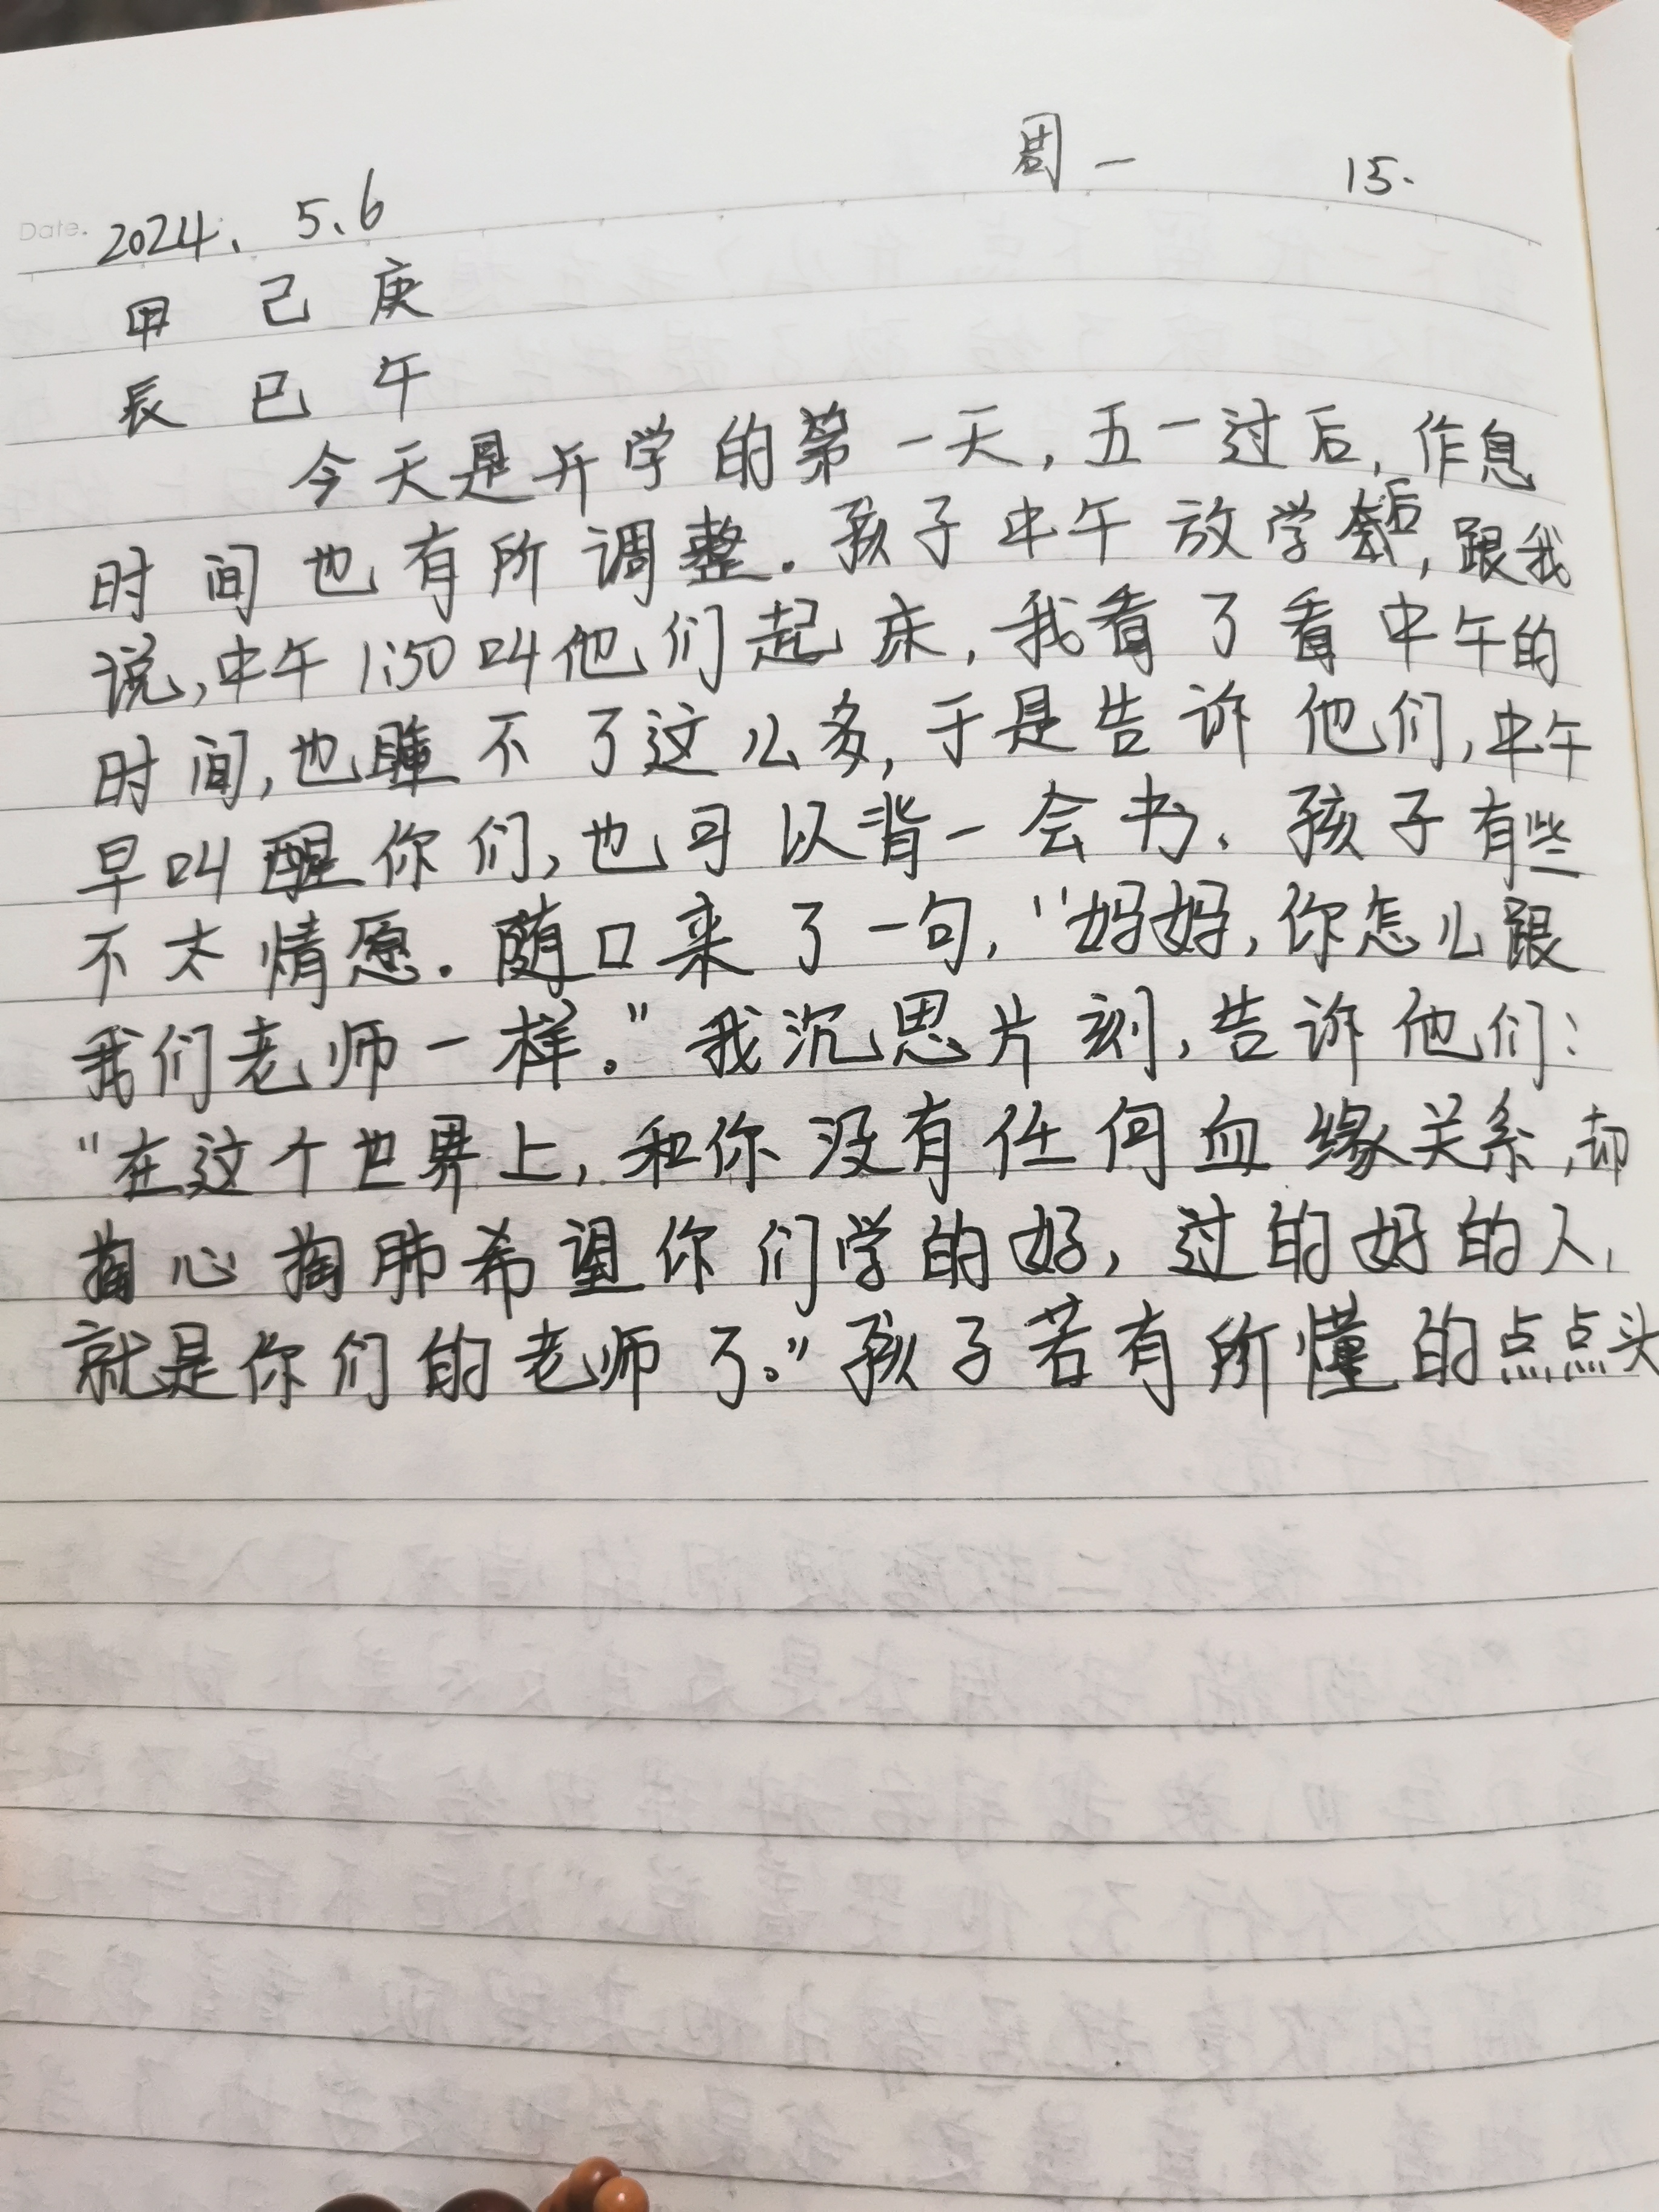 周一 15.
Date. 2024. 5.6
甲 己 庚
辰 巳 午
今天是开学的第一天,五一过后,作息
时间也有所调整.孩子中午放学后,跟我
说,中午1:50叫他们起床,我看了看中午的
时间,也睡不了这么多,于是告诉他们,中午
早叫醒你们,也可以背一会书.孩子有些
不太情愿.随口来了一句,"妈妈,你怎么跟
我们老师一样。"我沉思片刻,告诉他们:
"在这个世界上,和你没有任何血缘关系,却
掏心掏肺希望你们学的好,过的好的人,
就是你们的老师了。"孩子若有所懂的点点头